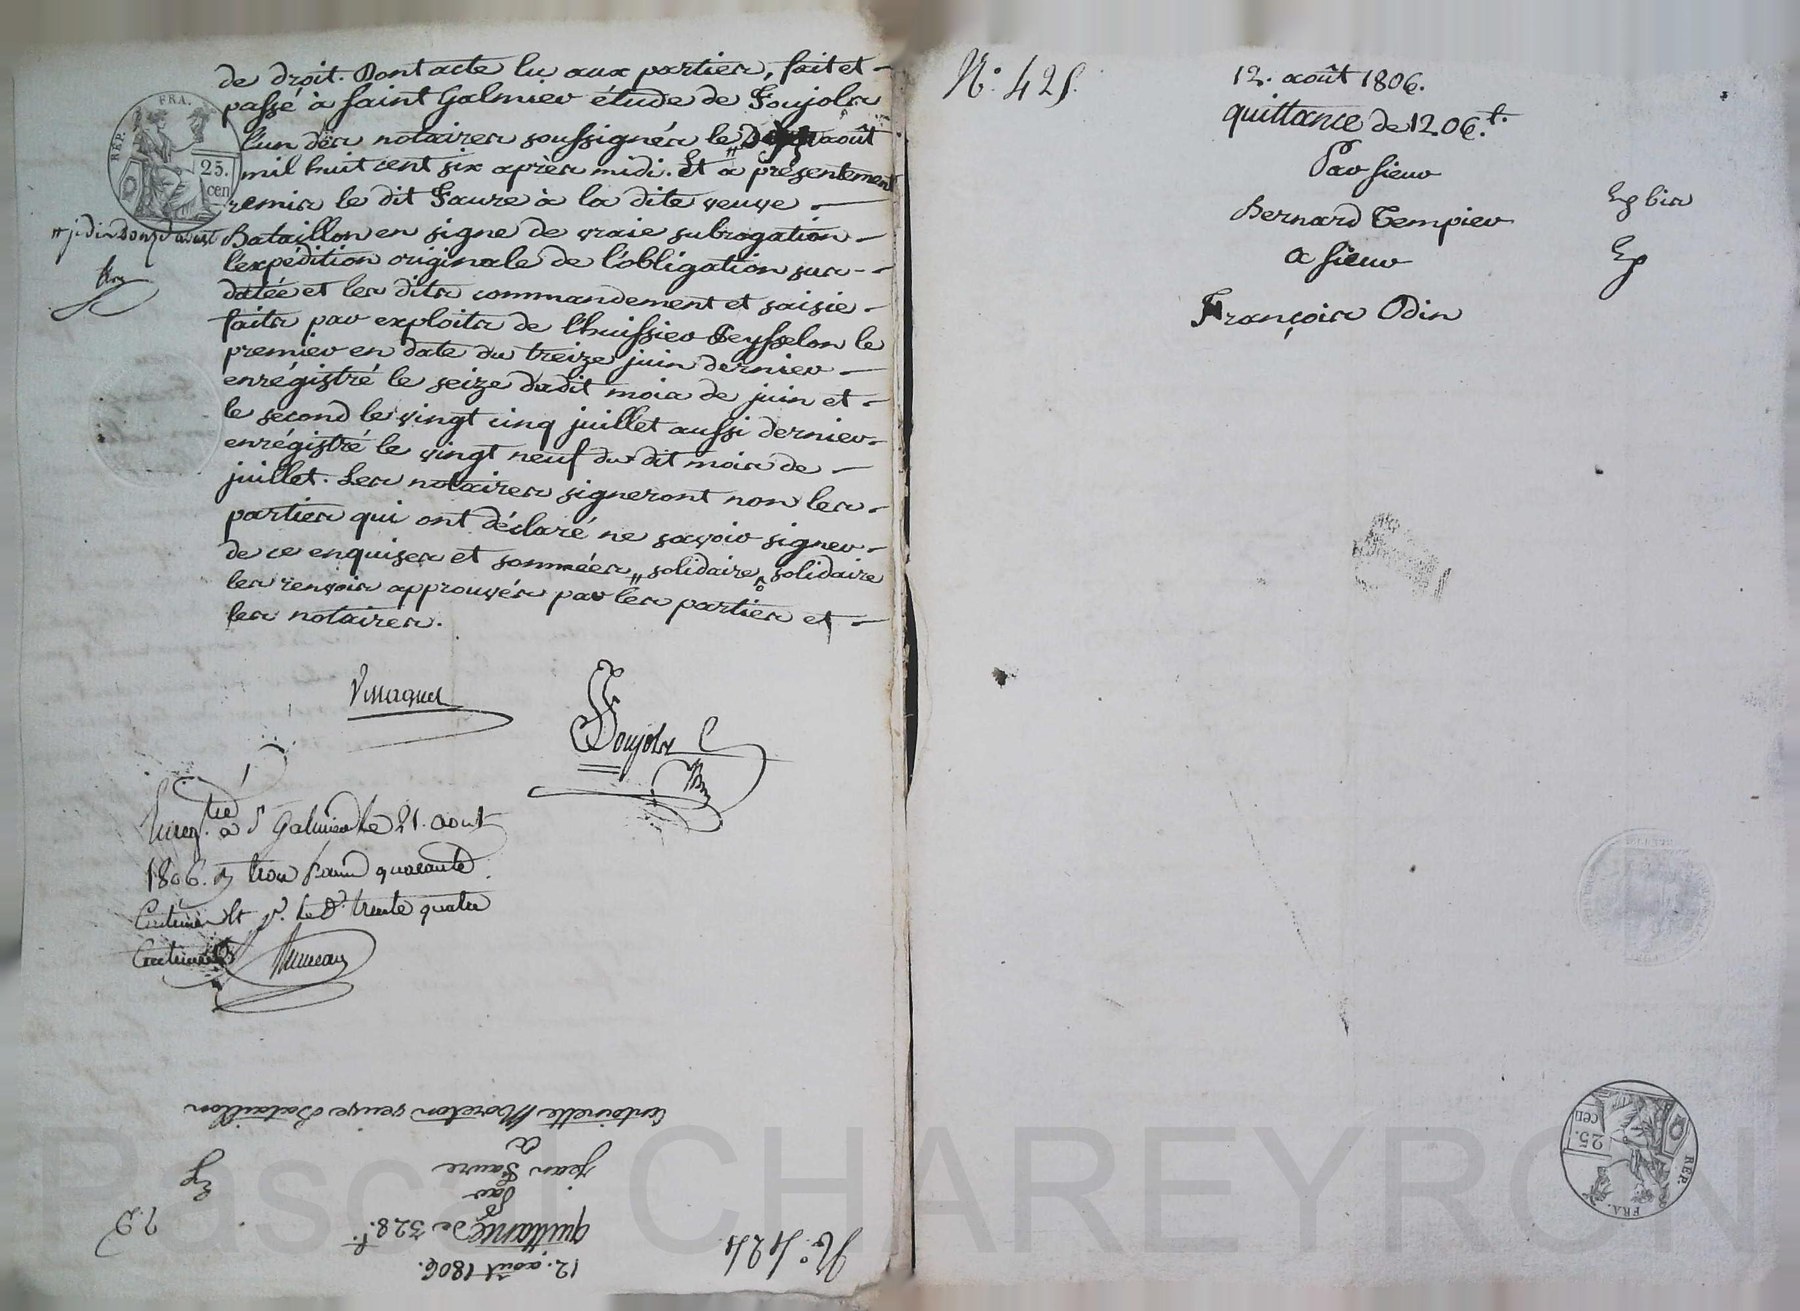 de droit. Dont acte lu aux parties, fait et
passé à saint Galmier étude de Poujols
l'un des notaires soussignés le août
mil huit cent six après midi. Et a présentement
remis le dit Faure à la dite veuve
Bataillon en signe de vraie subrogation
l'expédition originale de l'obligation sus-
datée et les dits commandement et saisie
faits par exploits de l'huissier Peysselon le
premier en date du treize juin dernier
enrégistré le seize dudit mois de juin et
le second le vingt cinq juillet aussi dernier
enrégistré le vingt neuf du dit mois de
juillet. Les notaires signeront non les
parties qui ont déclaré ne savoir signer
de ce enquises et sommées " solidaire, solidaire
les renvois approuvés par les parties et
les notaires.
FRA.
REP.
25.
cen
" jeudi douze août
Poujols
à St Galmier le 21. aout
1806. trois francs quarante
centimes et p. le d.e trente quatre
centimes
N.° 424
12. août 1806.
quittance de 328.f.
Par
jean Faure
a
Antoinette Moreton veuve Bataillon
Ex
N.° 425.
12. août 1806.
quittance de 1206.f.
Par sieur
Bernard Tempier
a sieur
François Odin
Ex bis
Ex
REP.
FRA.
25.
cen
Pascal CHAREYRON